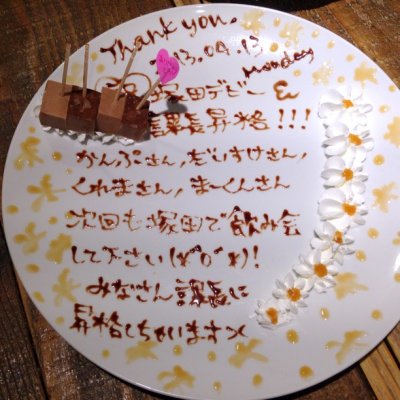 Thank you.
2013.04.13
Monday
塚田デビー &
課長昇格!!!
かんぷさん,だいすけさん,
くれまさん,まーくんさん
次回も塚田で飲み会
して下さい(*^o^*)!
みなさん課長に
昇格しちゃいます